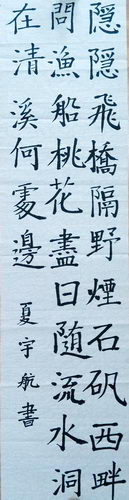 隱隱飛橋隔野煙石矶西畔
問漁船桃花盡日随流水洞
在清溪何處邊
夏宇航書